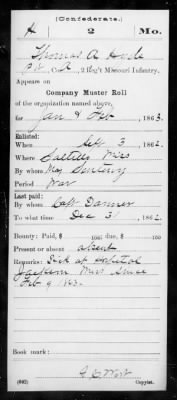 (Confederate.)
H 2 Mo.
Thomas A Hyde
Pvt, Co. , 2 Reg't Missouri Infantry.
Appears on
Company Muster Roll
of the organization named above,
for Jan & Feb , 1863.
Enlisted:
When Sept 3 , 1862.
Where Saltillo Miss
By whom
Period War
Last paid:
By whom Capt Danner
To what time Dec 31 , 1862.
Bounty: Paid, $ ; due, $
Present or absent absent
Remarks: Sick at Hospital
Jackson Miss Since
Feb 9 1863.
Book mark:
(642) Copyist.